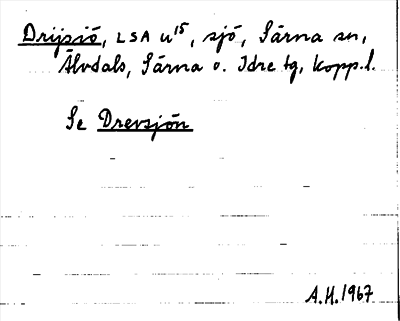 Drijsiö, LSA u¹⁵, sjö, Särna sn,
Älvdals, Särna o. Idre tg, Kopp.l.
Se Drevsjön
A.H.1967